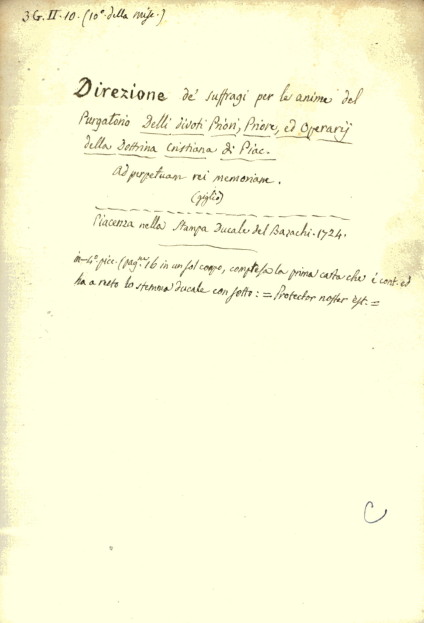 3G.II.10. (10° della misc.)
Direzione de' suffragi per le anime del
Purgatorio Delli divoti Priori, Priore, ed Operarij
della Dottrina Cristiana di Piac.
Ad perpetuam rei memoriam.
(giglio)
Piacenza nella Stampa Ducale del Bazachi. 1724.
in-4° picc. (pag.ne 16 in un sol corpo, compresa la prima carta che è cont. ed
ha a retro lo stemma ducale con sotto: = Protector noster est. =
C